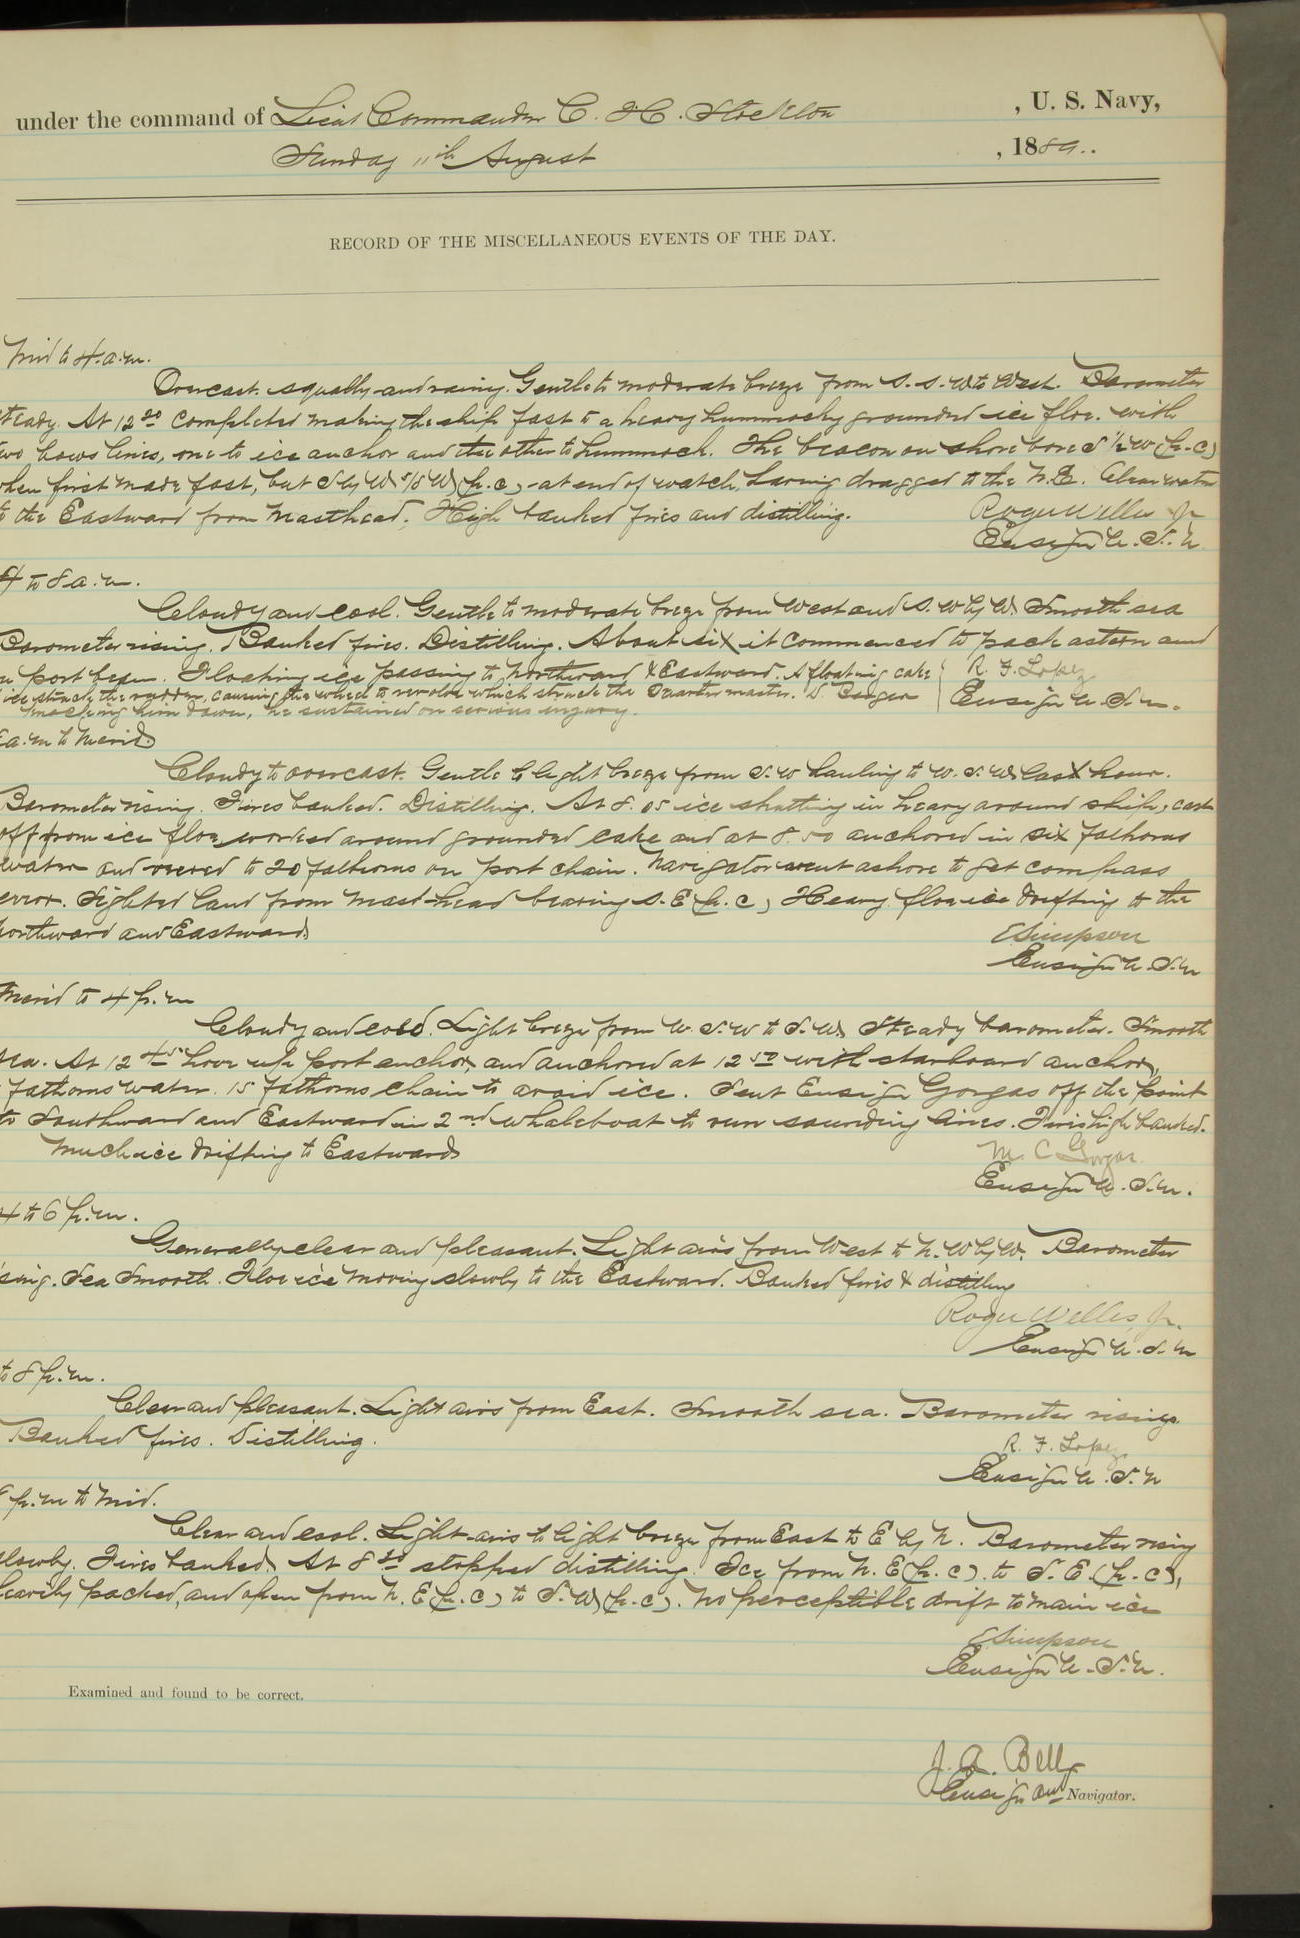 under the command of Lieut Commander C. H. Stockton , U. S. Navy,
Sunday 11th August , 1889..
RECORD OF THE MISCELLANEOUS EVENTS OF THE DAY.
Mid to 4.a.m.
Overcast. squally and rainy. Gentle to moderate breeze from S.S.W. to West. Barometer
steady. At 12 20 completed making the ship fast to a heavy hummocky grounded ice floe. with
two bows lines, one to ice anchor and the other to hummock. The beacon on shore bore S 1/2 W (p.c)
when first made fast, but S by W 5/8 W (p.c) - at end of watch, having dragged to the N.E. Clear water
to the Eastward from masthead. High banked fires and distilling. Roger Welles Jr
Ensign U.S.N.
4 to 8 a.m.
Cloudy and cool. Gentle to moderate breeze from West and S.W by W. Smooth sea
Barometer rising. Banked fires. Distilling. About six it commenced to pack astern and
on port beam. Floating ice passing to Northward & Eastward. A floating cake R. F. Lopez
ice struck the rudder, causing the wheel to revolve which struck the Quartermaster. Ensign U.S.N.
knocking him down, he sustained no serious injury.
8 a.m to Merid.
Cloudy to overcast. Gentle to light breeze from S.W hauling to W.S.W. last hour.
Barometer rising. Fires banked. Distilling. At 8.05 ice shutting in heavy around ship; cast
off from ice floe, worked around grounded cake and at 8.50 anchored in six fathoms
water and veered to 20 fathoms on port chain. Navigator went ashore to get compass
error. Sighted land from mast-head bearing S.E (p.c) Heavy floe ice drifting to the
Northward and Eastward E Simpson
Ensign U.S.N
Merid to 4 p.m
Cloudy and cold. Light breeze from W.S.W to S.W. Steady barometer. Smooth
sea. At 12 45 hove up port anchor, and anchored at 12 50 with starboard anchor,
fathoms water. 15 fathoms chain to avoid ice. Sent Ensign Gorgas off the point
to Southward and Eastward in 2nd whaleboat to run sounding lines. Fires high banked.
Much ice drifting to Eastward M. C Gorgas.
Ensign U.S.N.
4 to 6 p.m.
Generally clear and pleasant. Light airs from West to N.W by W. Barometer
rising. Sea smooth. Floe ice moving slowly to the Eastward. Banked fires & distilling
Roger Welles, Jr.
Ensign U.S.N
to 8 p.m.
Clear and pleasant. Light airs from East. Smooth sea. Barometer rising.
Banked fires. Distilling. R. F. Lopez
Ensign U.S.N
8 p.m to Mid.
Clear and cool. Light airs to light breeze from East to E by N. Barometer rising
slowly. Fires banked. At 8 20 stopped distilling. Ice from N.E (p.c). to S.E. (p.c),
heavily packed, and open from N.E (p.c) to S.W (p.c). No perceptible drift to main ice
E Simpson
Ensign U.S.N.
Examined and found to be correct.
J. A. Bell
Ensign and Navigator.